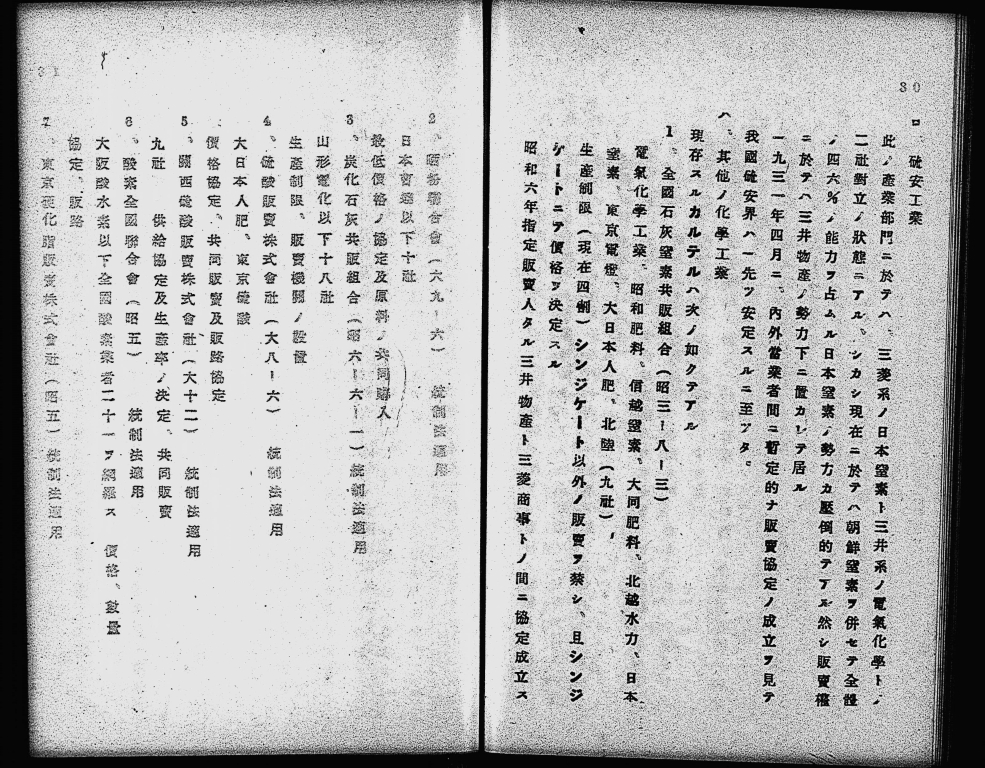 30
ロ、硫安工業
此ノ產業部門ニ於テハ、三菱系ノ日本窒素ト三井系ノ電氣化學トノ
二社對立ノ狀態ニアル、シカシ現在ニ於テハ朝鮮窒素ヲ併セテ全體
ノ四六%ノ能力ヲ占ムル日本窒素ノ勢力カ壓倒的テアル然シ販賣權
ニ於テハ三井物產ノ勢力下ニ置カレテ居ル
一九三一年四月ニ、內外當業者間ニ暫定的ナ販賣協定ノ成立ヲ見テ
我國硫安界ハ一先ツ安定スルニ至ツタ。
ハ、其他ノ化學工業
現存スルカルテルハ次ノ如クテアル
1、全國石灰窒素共販組合(昭三ー八ー三)
電氣化學工業、昭和肥料、信越窒素、大同肥料、北越水力、日本
窒素、東京電燈、大日本人肥、北陸(九社)
生產制限(現在四割)シンジケート以外ノ販賣ヲ禁シ、且シンジ
ケートニテ價格ヲ決定スル
昭和六年指定販賣人タル三井物產ト三菱商事トノ間ニ協定成立ス
31
2、晒粉聯合會(六九ー六) 統制法適用
日本曹達以下十社
最低價格ノ協定及原料ノ共同購入
3、炭化石灰共販組合(昭六ー六ー一) 統制法適用
山形電化以下十八社
生產制限、販賣機關ノ設置
4、硫酸販賣株式會社(大八ー六) 統制法適用
大日本人肥、東京硫酸
價格協定、共同販賣及販路協定
5、關西硫酸販賣株式會社(大十二) 統制法適用
九社 供給協定及生產率ノ決定、共同販賣
6、酸素全國聯合會(昭五) 統制法適用
大阪酸水素以下全國酸素業者二十一ヲ網羅ス 價格、數量
協定、販路
7、東京硬化脂販賣株式會社(昭五) 統制法適用